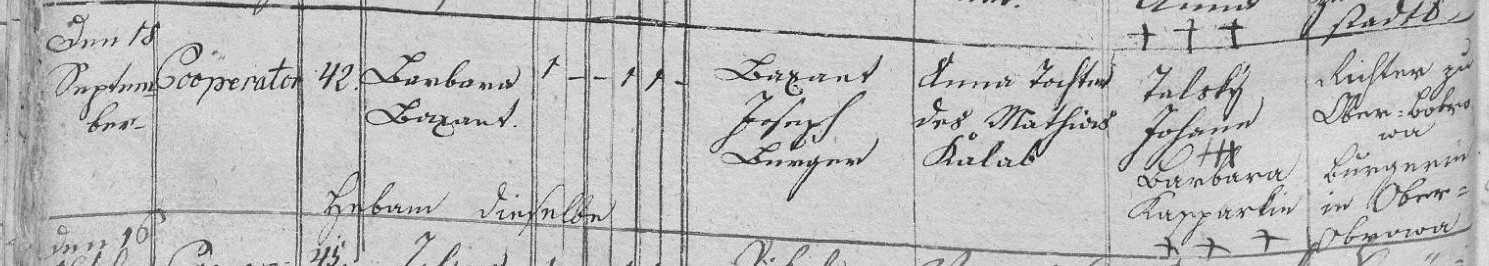 Anna
stadts
+ + +
Den 18
Septem
ber-
Cooperator
42.
Barbara
Baxant.
1 - - 1 1 -
Baxant
Joseph
Bürger
Anna Tochter
des Mathias
Kalab
Talsky
Johann
+++
Barbara
Kapparkin
+ + +
Richter zu
Ober-Bobro
wa
Burgerin
in Ober-
Obrowa
Hebam dieselbe
den 16
45.